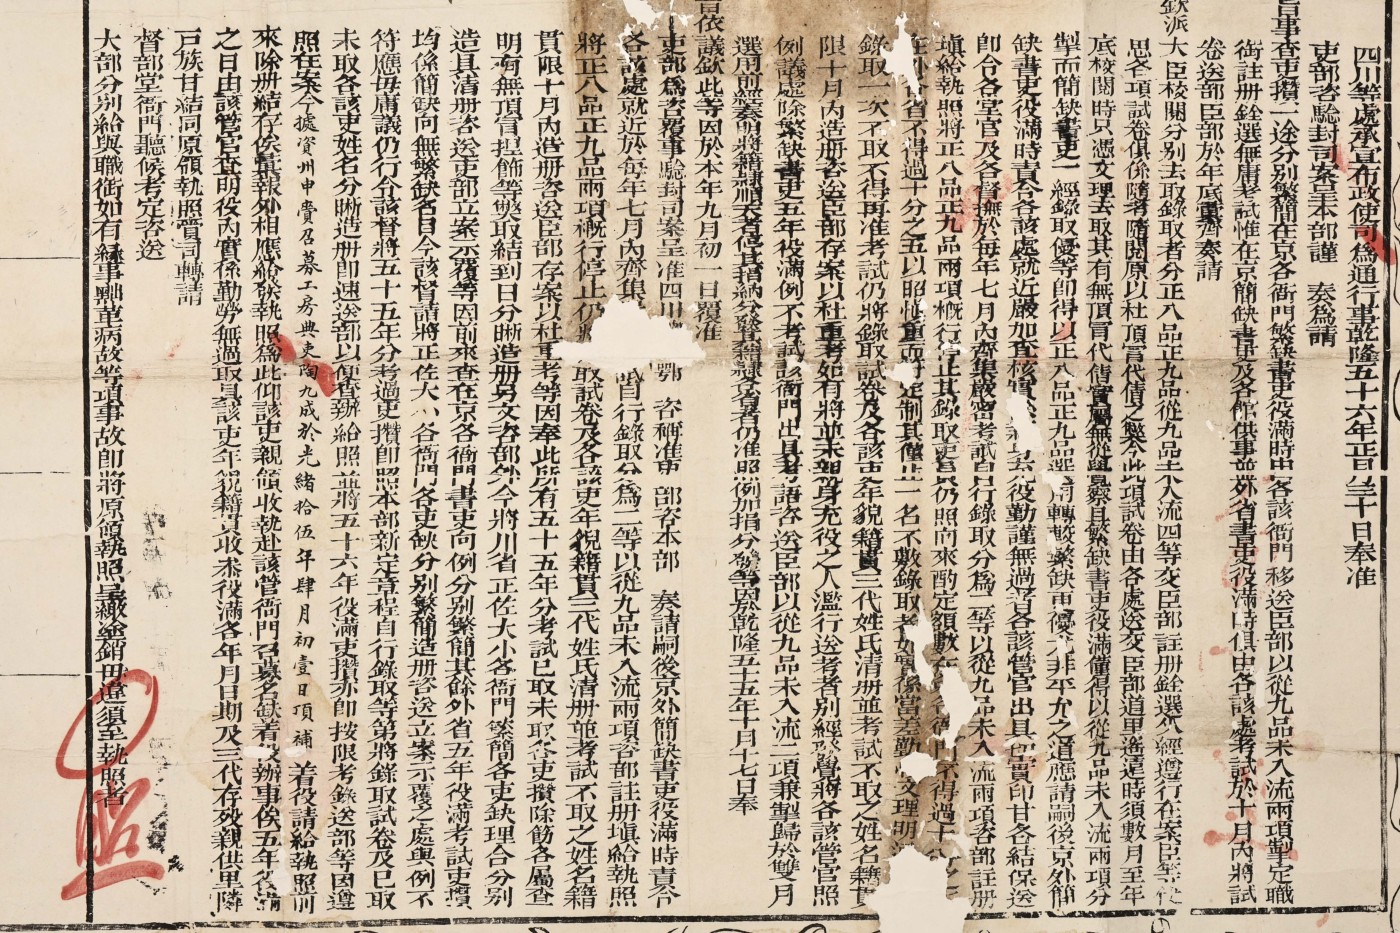 四川等處承宣布政使司為通行事乾隆五十六年正月三十日奉准
吏部咨驗封司案呈本部謹 奏為請
旨事查吏攢一途分別繁簡在京各衙門繁缺書吏役滿時由各該衙門移送臣部以從九品未入流兩項掣定職
銜註册銓選無庸考試惟在京簡缺書吏及各館供事並外省書吏役滿時俱由各該處考試於十月內將試
卷送部臣部於年底彙齊奏請
欽派大臣校閱分別去取錄取者分正八品正九品從九品未入流四等交臣部註册銓選久經遵行在案臣等伏
思各項試卷俱係隨考隨閱原以杜頂冒代倩之弊今此項試卷由各處送交臣部道里遙遠時須數月至年
底校閱時只憑文理去取其有無頂冒代倩實屬無從覺察且繁缺書吏役滿僅得以從九品未入流兩項分
掣而簡缺書吏一經錄取優等即得以正八品正九品選用轉較繁缺更優尤非平允之道應請嗣後京外簡
缺書吏役滿時責令各該處就近嚴加查核實 役勤謹無過者各該管官出具印實印甘各結保送
即令各堂官及各督撫於每年七月內齊集嚴密考試自行錄取分為二等以從九品未入流兩項咨部註册
塡給執照將正八品正九品兩項概行停止其錄取名數仍照向來酌定額數在 衙門不得過十分之
在外各省不得過十分之五以照慎重而符定制其僅止一名不數錄取者如實係當差勤 文理明
錄取一次不取不得再准考試仍將錄取試卷及各該吏年貌籍貫三代姓氏清册並考試不取之姓名籍貫
限十月內造册咨送臣部存案以杜重考如有將並未親身充役之人濫行送考者別經發覺將各該管官照
例議處除繁缺書吏五年役滿例不考試該衙門出具考語咨送臣部以從九品未入流二項兼掣歸於雙月
選用前經奏明將籍隸順天者停其指納分發籍隸京省者仍准照例加捐分發等因於乾隆五十五年十月十七日奉
旨依議欽此等因於本年九月初一日覆准
吏部為咨覆事驗封司案呈准四川 鄂 咨稱准吏部咨本部 奏請嗣後京外簡缺書吏役滿時責令
各該處就近於每年七月內齊集 試自行錄取分為二等以從九品未入流兩項咨部註册塡給執照
將正八品正九品兩項概行停止仍將 取試卷及各該吏年貌籍貫三代姓氏清册並考試不取之姓名籍
貫限十月內造册咨送臣部存案以杜重考等因奉此所有五十五年分考試已取未取各吏攢除飭各屬查
明有無頂冒捏飾等弊取結到日分晰造册另文咨部外今將川省正佐大小各衙門繁簡各吏缺理合分別
造具清册咨送吏部立案示覆等因前來查在京各衙門書吏向例分別繁簡其餘外省五年役滿考試吏攢
均係簡缺向無繁缺名目今該督請將正佐大小各衙門各吏缺分別繁簡造册咨送立案示覆之處與例不
符應毋庸議仍行令該督將五十五年分考過吏攢即照本部新定章程自行錄取等第將錄取試卷及已取
未取各該吏姓名分晰造册即速送部以便查辦給照並將五十六年役滿吏攢亦即按限考錄送部等因遵
照在案今據資州申賫召募工房典吏陶九成於光緒拾伍年肆月初壹日頂補 着役請給執照前
來除册結存俟彙報外相應給發執照為此仰該吏親領收執赴該管衙門召募名缺着役辦事俟五年役滿
之日由該管官查明役內實係勤勞無過取具該吏年貌籍貫收叅役滿各年月日期及三代存歿親供里隣
戶族甘結同原領執照賫司轉請
督部堂衙門聽候考定咨送
大部分別給與職銜如有緣事斥革病故等項事故即將原領執照呈繳塗銷毋違須至執照者